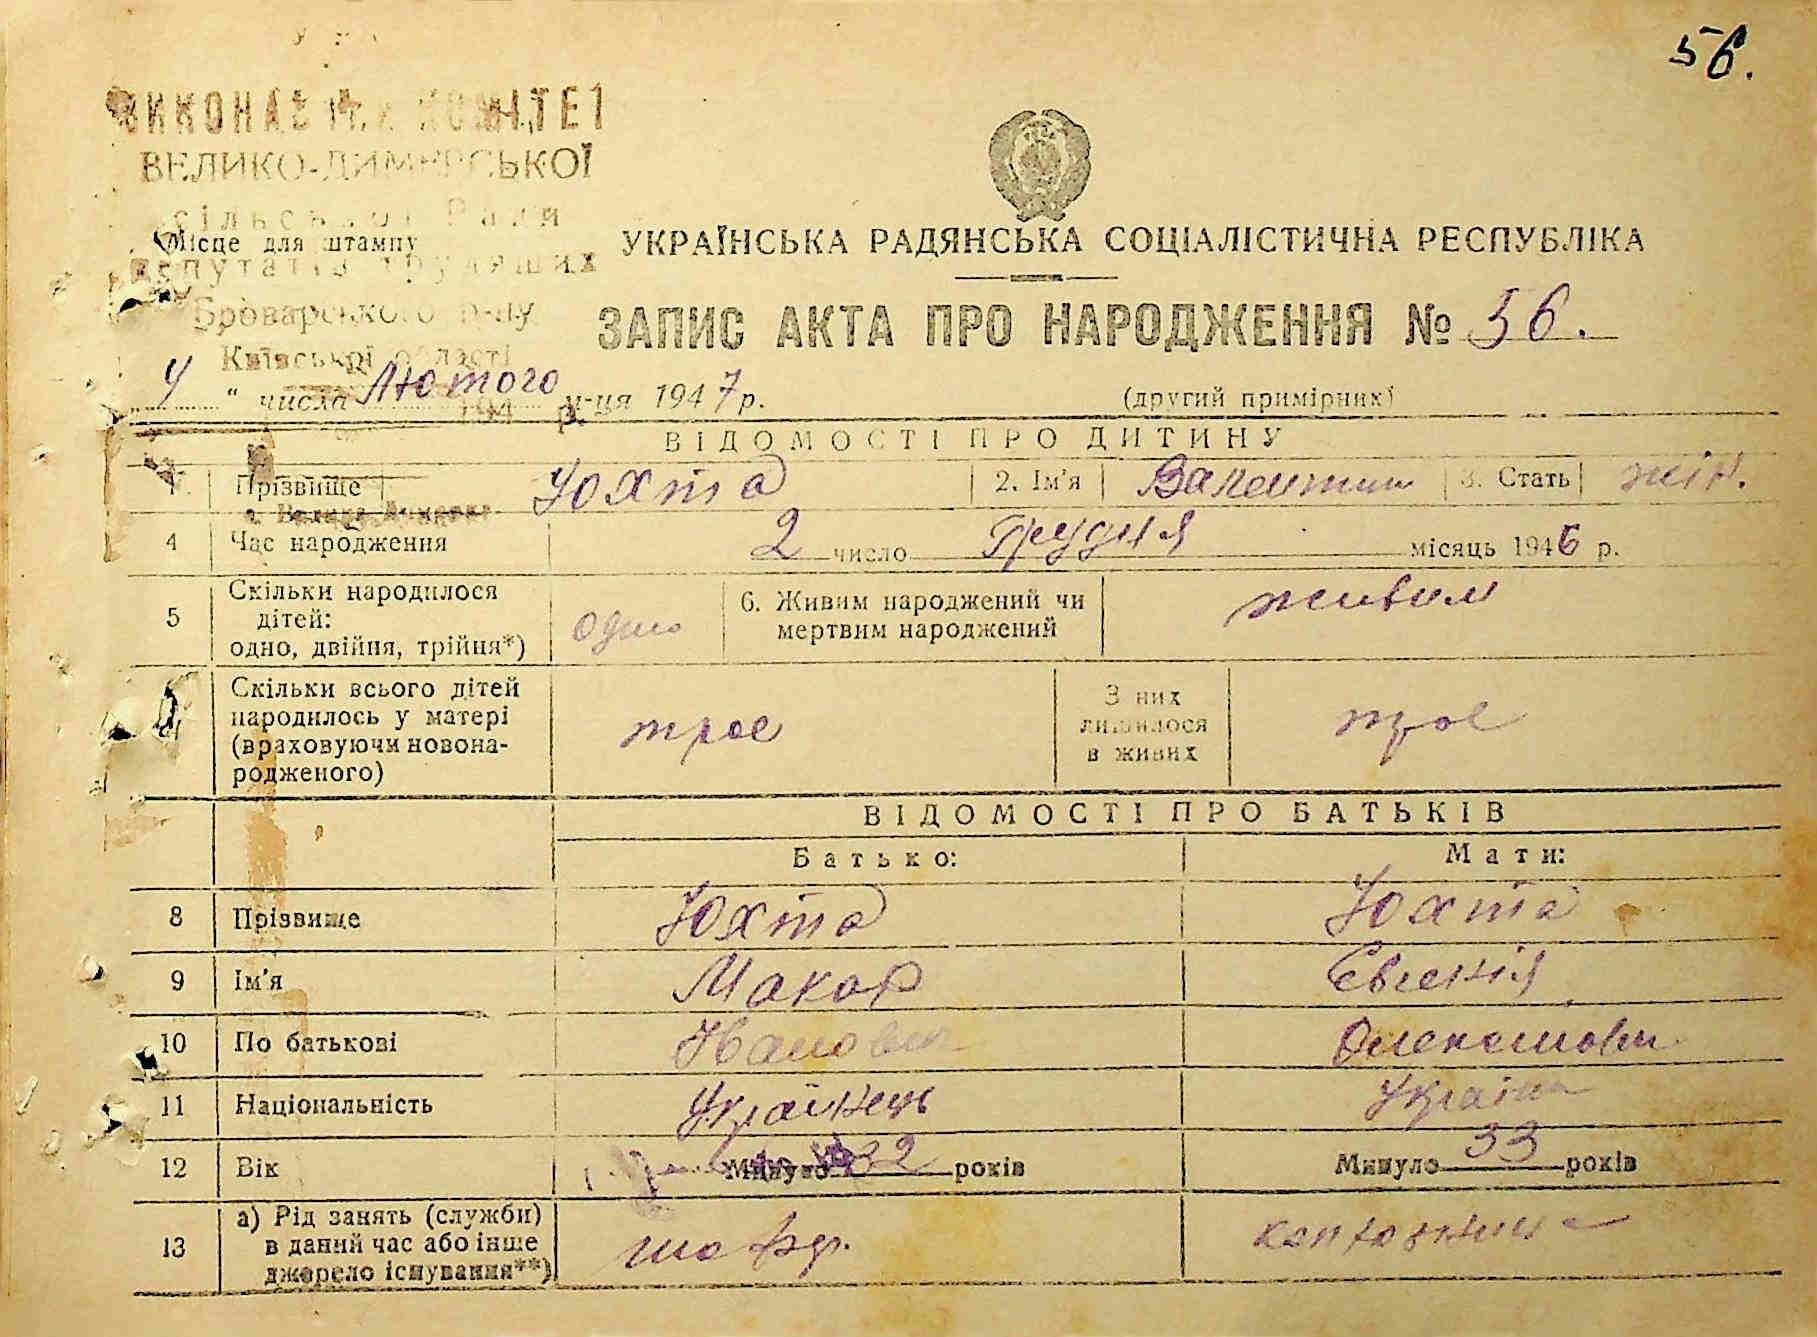 56.
ВИКОНАВЧИЙ КОМІТЕТ
ВЕЛИКО-ДИМЕРСЬКОЇ
сільської Ради
Місце для штампу
депутатів трудящих
Броварського р-ну
Київської області
194 р.
УКРАЇНСЬКА РАДЯНСЬКА СОЦІАЛІСТИЧНА РЕСПУБЛІКА
ЗАПИС АКТА ПРО НАРОДЖЕННЯ № 56.
4 " числа Лютого м-ця 1947 р. (другий примірник)
ВІДОМОСТІ ПРО ДИТИНУ
1. Прізвище Юхта 2. Ім'я Валентин 3. Стать жін.
4 Час народження 2 число Грудня місяць 1946 р.
5 Скільки народилося дітей: одно, двійня, трійня*) одно 6. Живим народжений чи мертвим народжений живим
Скільки всього дітей народилось у матері (враховуючи новонародженого) троє З них лишилося в живих троє
ВІДОМОСТІ ПРО БАТЬКІВ
Батько: Мати:
8 Прізвище Юхта Юхта
9 Ім'я Макар Євгенія
10 По батькові
11 Національність Українець Україн
12 Вік Минуло 32 років Минуло 33 років
13 а) Рід занять (служби) в даний час або інше джерело існування**) шофер.